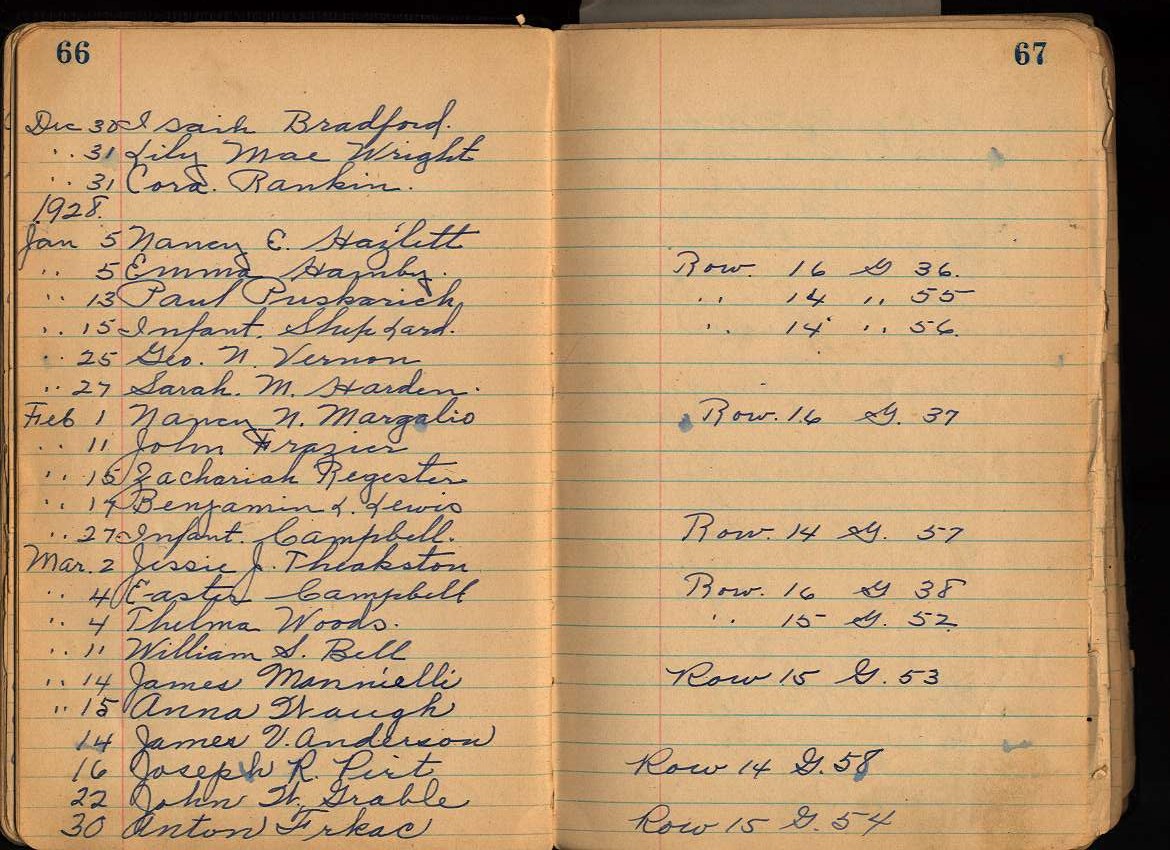 66
67
Dec 30 Isaih Bradford.
" 31 Lily Mae Wright
" 31 Cora. Rankin.
1928.
Jan 5 Nancy E. Hazlett
" 5 Emma Hamby. Row. 16 G 36.
" 13 Paul Puskarich " 14 " 55
" 15 Infant. Shephard. " 14 " 56.
" 25 Geo. N. Vernon
" 27 Sarah. M. Harden.
Feb 1 Nancy N. Margalio Row. 16 G. 37
" 11 John Frazier
" 15 Zachariah Regester
" 19 Benjamin L. Lewis
" 27 Infant. Campbell. Row. 14 G. 57
Mar. 2 Jessie J. Theakston
" 4 Easter Campbell Row. 16 G 38
" 4 Thelma Woods. " 15 G. 52
" 11 William S. Bell
" 14 James Mannielli Row 15 G. 53
" 15 Anna Waugh
14 James V. Anderson
16 Joseph R. Pirt Row 14 G. 58
22 John W. Grable
30 Anton Frkac Row 15 G. 54